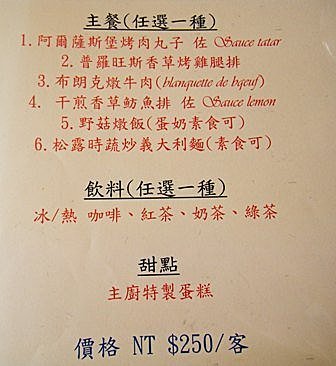 主餐(任選一種)
1. 阿爾薩斯堡烤肉丸子 佐 Sauce tatar
2. 普羅旺斯香草烤雞腿排
3. 布朗克燉牛肉(blanquette de bœuf)
4. 干煎香草魴魚排 佐 Sauce lemon
5. 野菇燉飯(蛋奶素食可)
6. 松露時蔬炒義大利麵(素食可)
飲料(任選一種)
冰/熱 咖啡、紅茶、奶茶、綠茶
甜點
主廚特製蛋糕
價格 NT $250/客